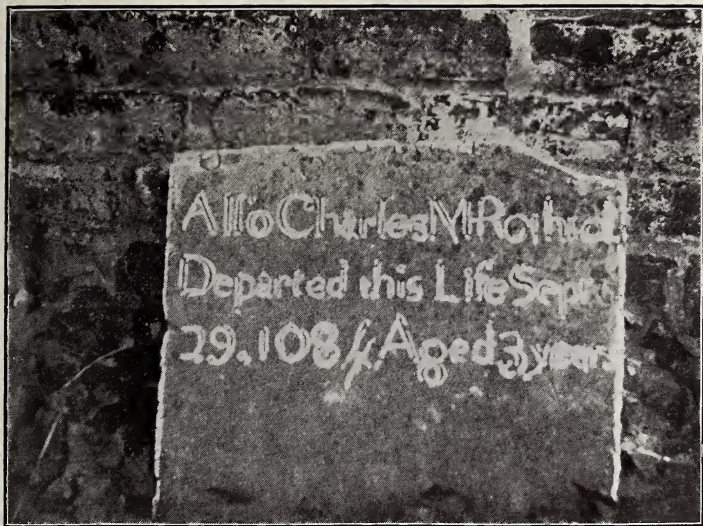 Alſo Charles
Departed this Life Sept
29.1084.Aged 3 years.